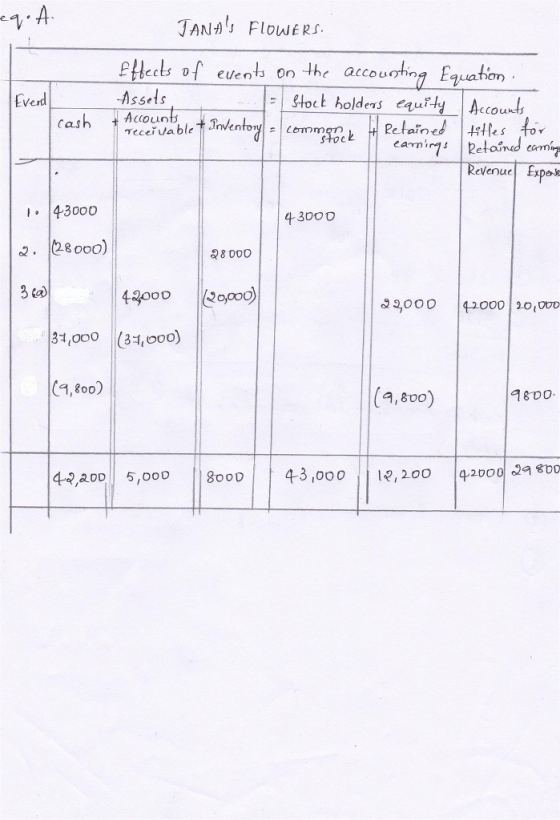 eq. A.
JANA's FLOWERS.
Effects of events on the accounting Equation.
Event Assets = Stock holders equity Accounts titles for Retained earning
cash + Accounts receivable + Inventory = common stock + Retained earnings
Revenue Expense
1. 43000 43000
2. (28000) 28000
3(a) 42,000 (20,000) 22,000 42000 20,000
37,000 (37,000)
(9,800) (9,800) 9800.
42,200 5,000 8000 43,000 12,200 42000 29800